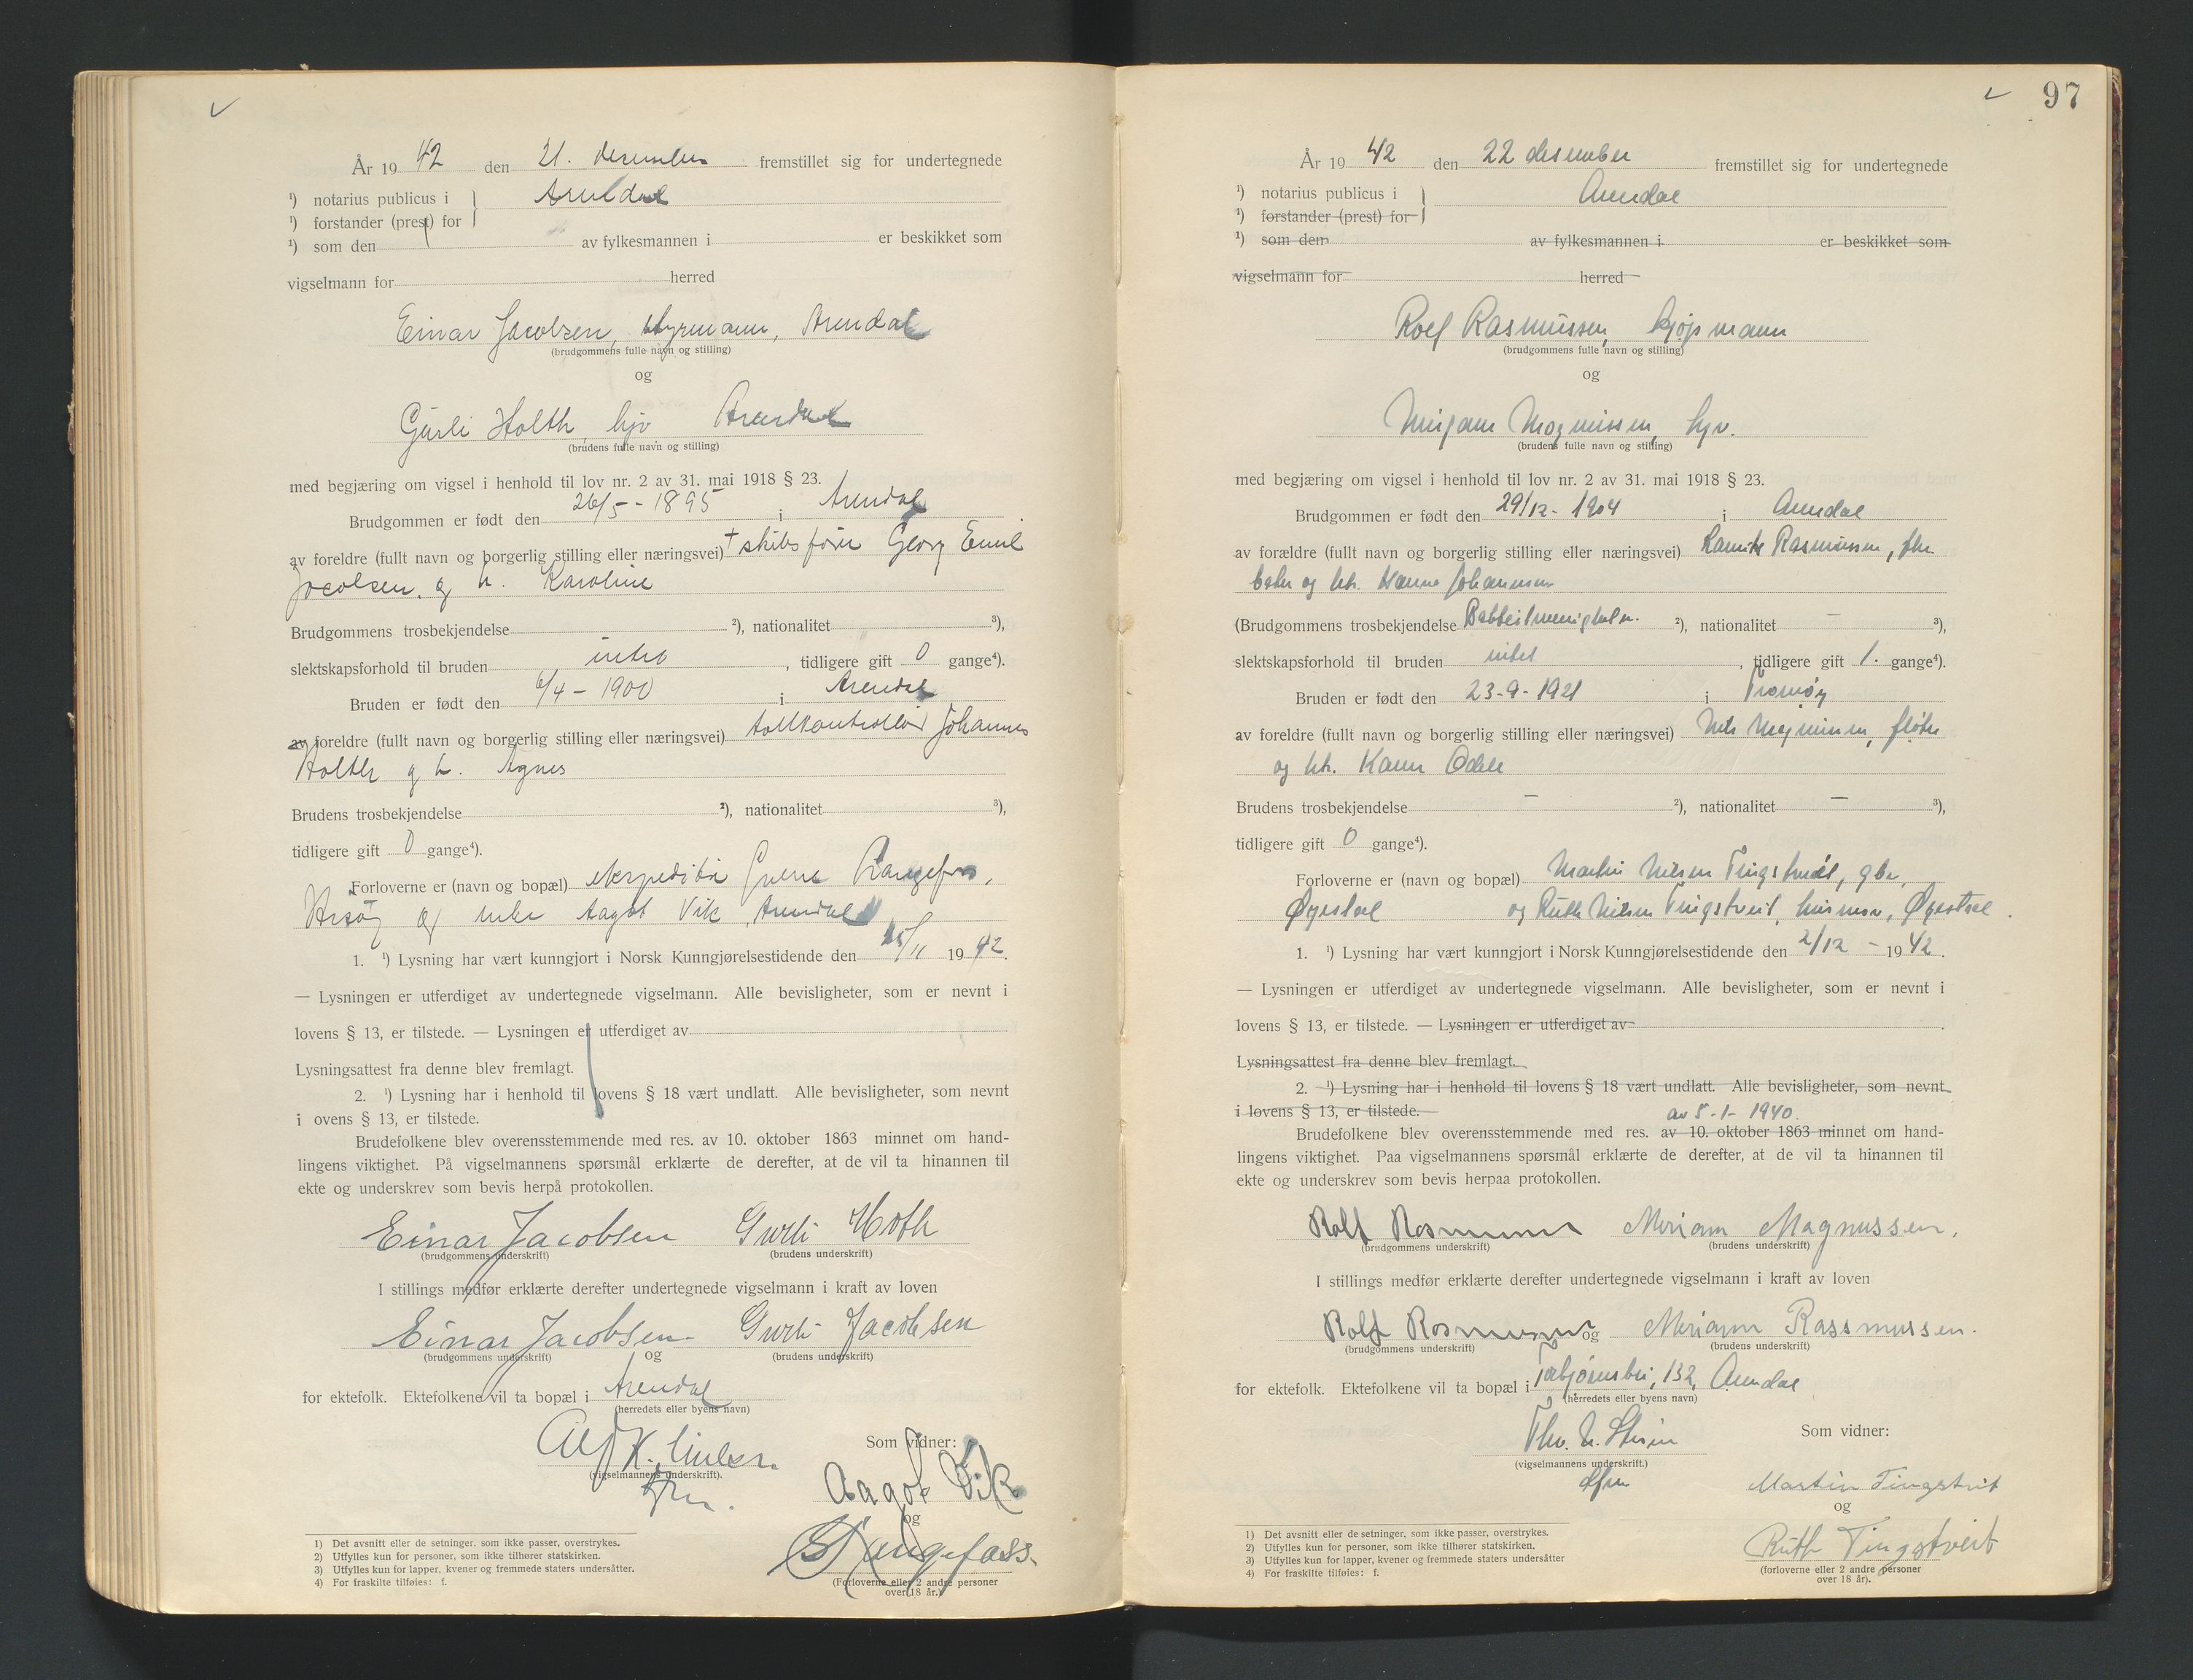 År 19 42 den 21. desember fremstillet sig for undertegnede
¹) notarius publicus i } Arendal
¹) forstander (prest) for
¹) som den av fylkesmannen i er beskikket som
vigselmann for herred
Einar Jacobsen, styrmann, Arendal
(brudgommens fulle navn og stilling)
og
Gurli Holth hjv Arendal
(brudens fulle navn og stilling)
med begjæring om vigsel i henhold til lov nr. 2 av 31. mai 1918 § 23.
Brudgommen er født den 26/5 - 1895 i Arendal
av foreldre (fullt navn og borgerlig stilling eller næringsvei) + skibsfører Georg Emil
Jacobsen. og h. Karoline
Brudgommens trosbekjendelse ²), nationalitet ³),
slektskapsforhold til bruden intet, tidligere gift 0 gange⁴).
Bruden er født den 6/4 - 1900 i Arendal
av foreldre (fullt navn og borgerlig stilling eller næringsvei) tollkontrollør Johannes
Holth og h. Agnes
Brudens trosbekjendelse ²), nationalitet ³),
tidligere gift 0 gange⁴).
Forloverne er (navn og bopæl) ekspeditør Langefoss,
Hisøy og Aagot Vik, Arendal
1. ¹) Lysning har vært kunngjort i Norsk Kunngjørelsestidende den /11 19 42.
— Lysningen er utferdiget av undertegnede vigselmann. Alle bevisligheter, som er nevnt i
lovens § 13, er tilstede. — Lysningen er utferdiget av
Lysningsattest fra denne blev fremlagt.
2. ¹) Lysning har i henhold til lovens § 18 vært undlatt. Alle bevisligheter, som nevnt
i ovens § 13, er tilstede.
Brudefolkene blev overensstemmende med res. av 10. oktober 1863 minnet om hand-
lingens viktighet. På vigselmannens spørsmål erklærte de derefter, at de vil ta hinannen til
ekte og underskrev som bevis herpå protokollen.
Einar Jacobsen Gurli Holth
(brudgommens underskrift) (brudens underskrift)
I stillings medfør erklærte derefter undertegnede vigselmann i kraft av loven
Einar Jacobsen Gurli Jacobsen
(brudgommens underskrift) og (brudens underskrift)
for ektefolk. Ektefolkene vil ta bopæl i Arendal
(herredets eller byens navn)
Alf K.
Som vidner:
(vigselmannens underskrift).
Aagot Vik
og
Langefoss.
(Forloverne eller 2 andre personer
over 18 år.)
1) Det avsnitt eller de setninger, som ikke passer, overstrykes.
2) Utfylles kun for personer, som ikke tilhører statskirken.
3) Utfylles kun for lapper, kvener og fremmede staters undersåtter.
4) For fraskilte tilføies: f.
97
År 19 42 den 22 desember fremstillet sig for undertegnede
¹) notarius publicus i } Arendal
¹) forstander (prest) for
¹) som den av fylkesmannen i er beskikket som
vigselmann for herred
Rolf Rasmussen, kjøpmann
(brudgommens fulle navn og stilling)
og
Mirjam Magnussen, hjv.
(brudens fulle navn og stilling)
med begjæring om vigsel i henhold til lov nr. 2 av 31. mai 1918 § 23.
Brudgommen er født den 29/12 - 1904 i Arendal
av forældre (fullt navn og borgerlig stilling eller næringsvei) Rasmussen,
og htr. Hanna Johannessen
(Brudgommens trosbekjendelse ²), nationalitet — ³),
slektskapsforhold til bruden intet, tidligere gift 1. gange⁴).
Bruden er født den 23-9-1921 i Tromøy
av foreldre (fullt navn og borgerlig stilling eller næringsvei) Magnussen, fløter
og htr. Karen Odele
Brudens trosbekjendelse — ²), nationalitet — ³),
tidligere gift 0 gange⁴).
Forloverne er (navn og bopæl) Martin Nilsen Tingstveit, gbr,
Øyestad og Ruth Nilsen Tingstveit, husmor, Øyestad.
1. ¹) Lysning har vært kunngjort i Norsk Kunngjørelsestidende den 2/12 - 19 42.
— Lysningen er utferdiget av undertegnede vigselmann. Alle bevisligheter, som er nevnt i
lovens § 13, er tilstede. — Lysningen er utferdiget av
Lysningsattest fra denne blev fremlagt.
2. ¹) Lysning har i henhold til lovens § 18 vært undlatt. Alle bevisligheter, som nevnt
i lovens § 13, er tilstede.
av 5-1-1940.
Brudefolkene blev overensstemmende med res. av 10. oktober 1863 minnet om hand-
lingens viktighet. Paa vigselmannens spørsmål erklærte de derefter, at de vil ta hinannen til
ekte og underskrev som bevis herpaa protokollen.
Rolf Rasmussen Miriam Magnussen.
(brudgommens underskrift) (brudens underskrift)
I stillings medfør erklærte derefter undertegnede vigselmann i kraft av loven
Rolf Rasmussen og Miriam Rassmussen.
(brudgommens underskrift) (brudens underskrift)
for ektefolk. Ektefolkene vil ta bopæl i Torbjørnsbu, 132, Arendal
(herredets eller byens navn)
Som vidner:
(vigselmannens underskrift.)
Martin Tingstveit
og
Ruth Tingstveit
(forloverne eller 2 andre personer
over 18 år).
1) Det avsnitt eller de setninger, som ikke passer, overstrykes.
2) Utfylles kun for personer, som ikke tilhører statskirken.
3) Utfylles kun for lapper, kvener og fremmede staters undersåtter
4) For fraskilte tilføies: f.